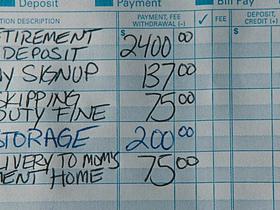 Deposit Payment Bill Pay
ION DESCRIPTION PAYMENT, FEE WITHDRAWAL (-) ✓ FEE DEPOSIT, CREDIT (+)
ETIREMENT
DEPOSIT $2400 00 $
SIGNUP 137 00
SKIPPING
DUTY FINE 75 00
STORAGE 200 00
LIVERY TO MOM'S
MENT HOME 75 00